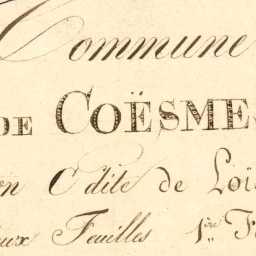 Commune
DE COËSME
on Dite de Loi
eux Feuilles 1.ère F